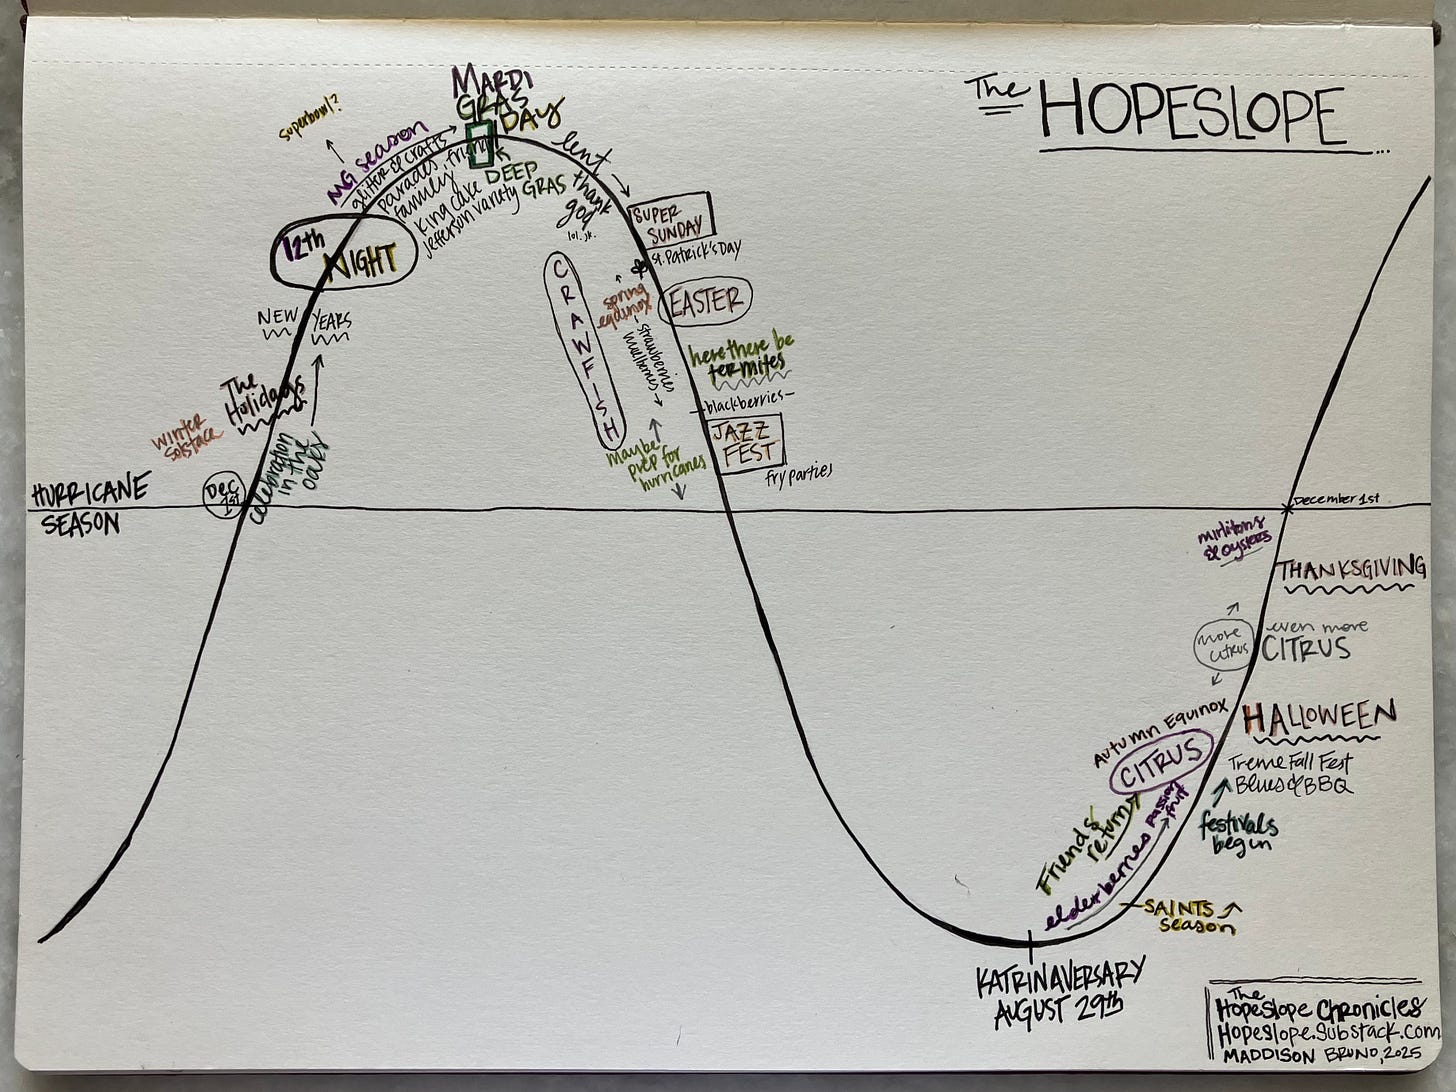 The HOPESLOPE ...
Superbowl?
MARDI
GRAS
DAY
MG season
glitter & crafts
parades, friends
family
King cake
Jefferson variety
DEEP
GRAS
lent
thank
god
lol. jk.
12th
NIGHT
NEW YEARS
The
Holidays
winter
Solstace
celebration
in the
oaks
Dec
1st
HURRICANE
SEASON
SUPER
SUNDAY
St. Patrick's Day
CRAWFISH
spring
equinox
EASTER
strawberries
mulberries
here there be
termites
-blackberries-
JAZZ
FEST
fry parties
maybe
prep for
hurricanes
December 1st
mirlitons
& oysters
THANKSGIVING
more
citrus
even more
CITRUS
Autumn Equinox
HALLOWEEN
CITRUS
Treme Fall Fest
Blues & BBQ
Friends
return
elderberries
passion
fruit
festivals
begin
SAINTS
season
KATRINAVERSARY
AUGUST 29th
The
Hopeslope Chronicles
Hopeslope.Substack.com
MADDISON BRUNO, 2025